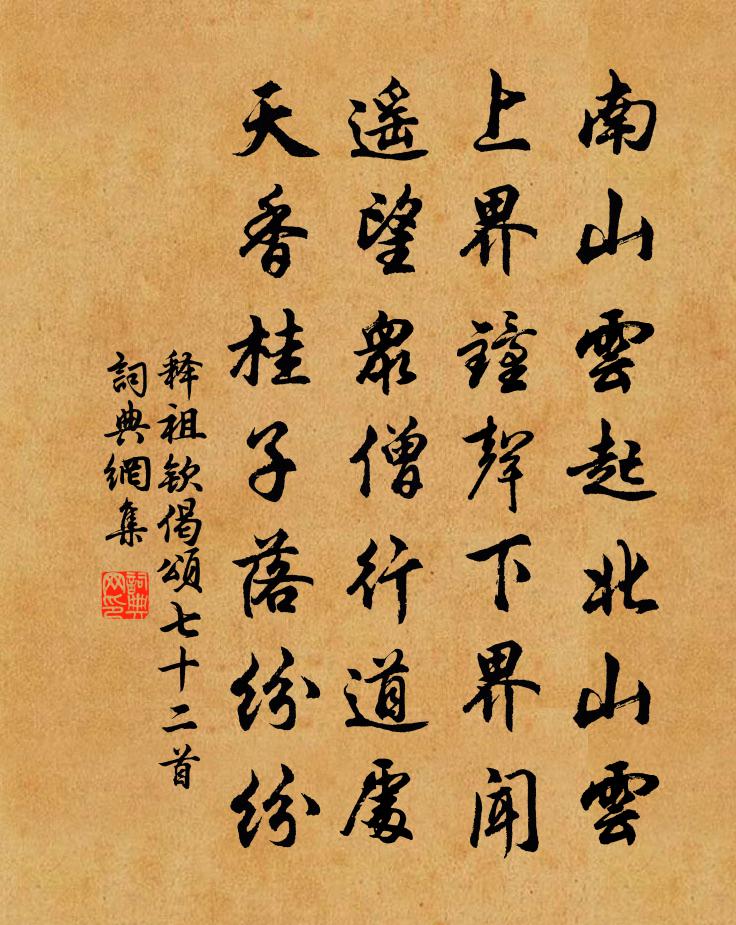 南山雲起北山雲
上界鐘聲下界聞
遥望衆僧行道處
天香桂子落紛紛
释祖欽偈頌七十二首
詞典網集
詞典网印